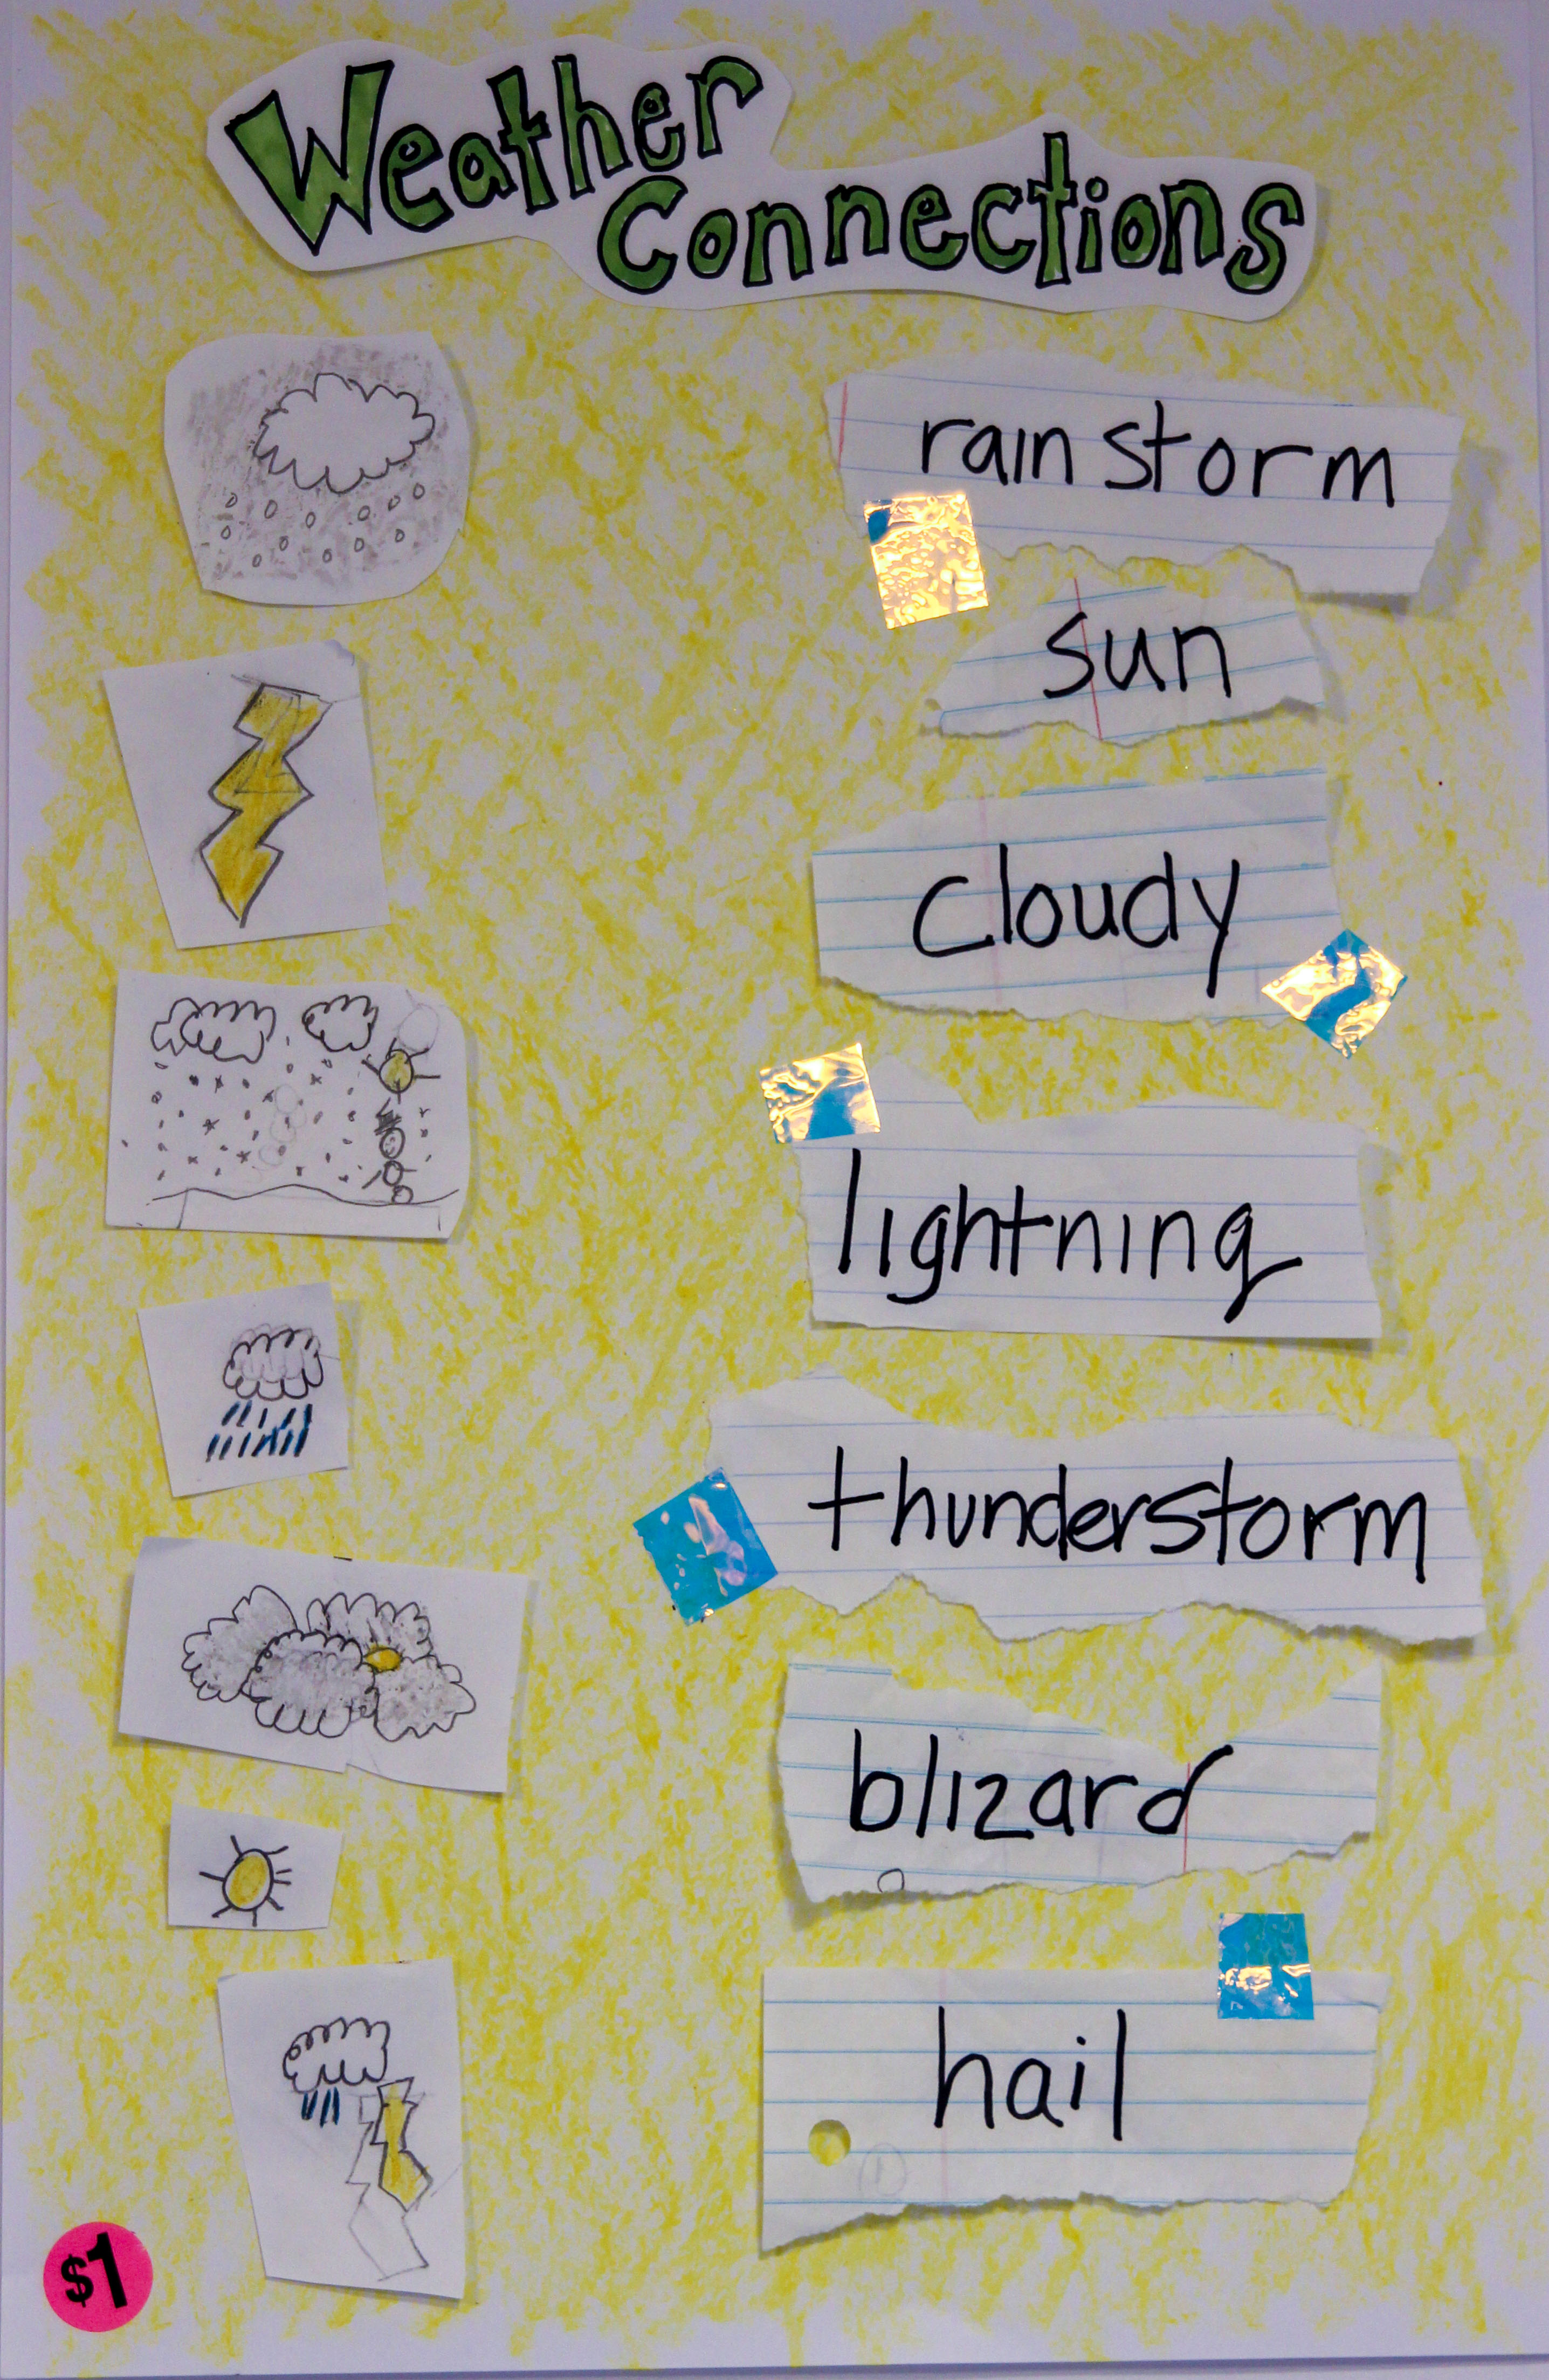 Weather
Connections
rainstorm
sun
cloudy
lightning
thunderstorm
blizard
hail
$1